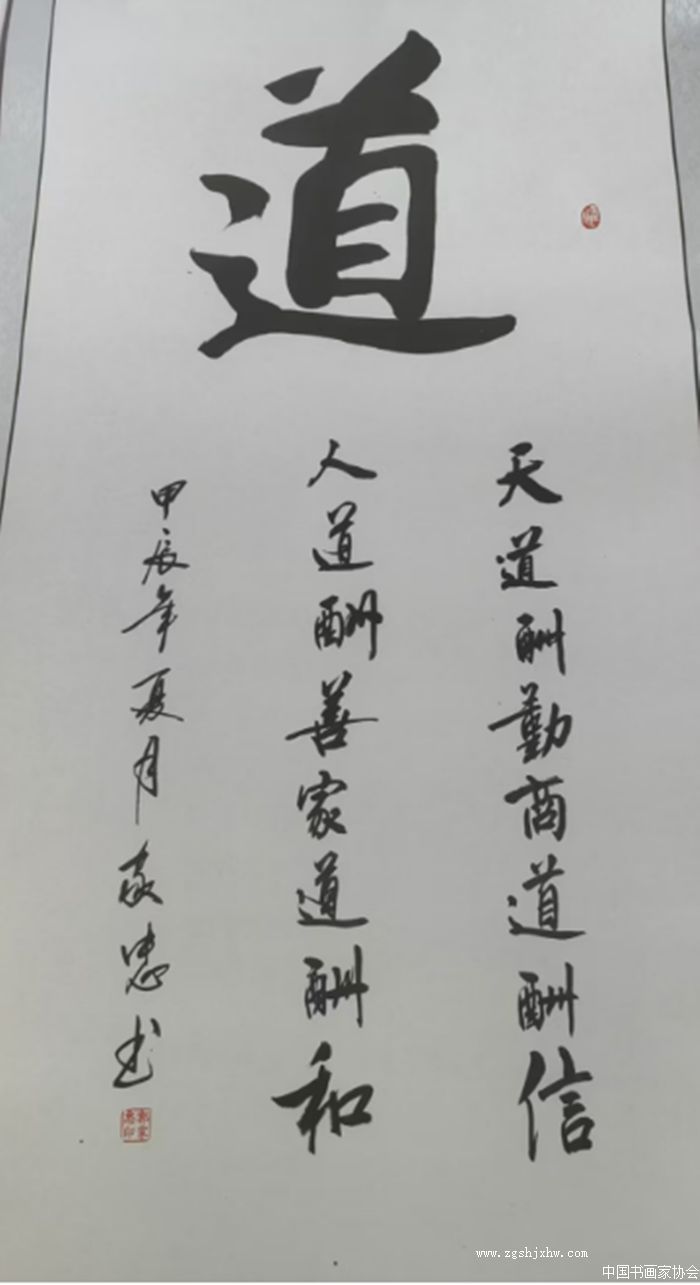 道
天道酬勤商道酬信
人道酬善家道酬和
甲辰年夏月家忠书
www.zgshjxhw.com
中国书画家协会